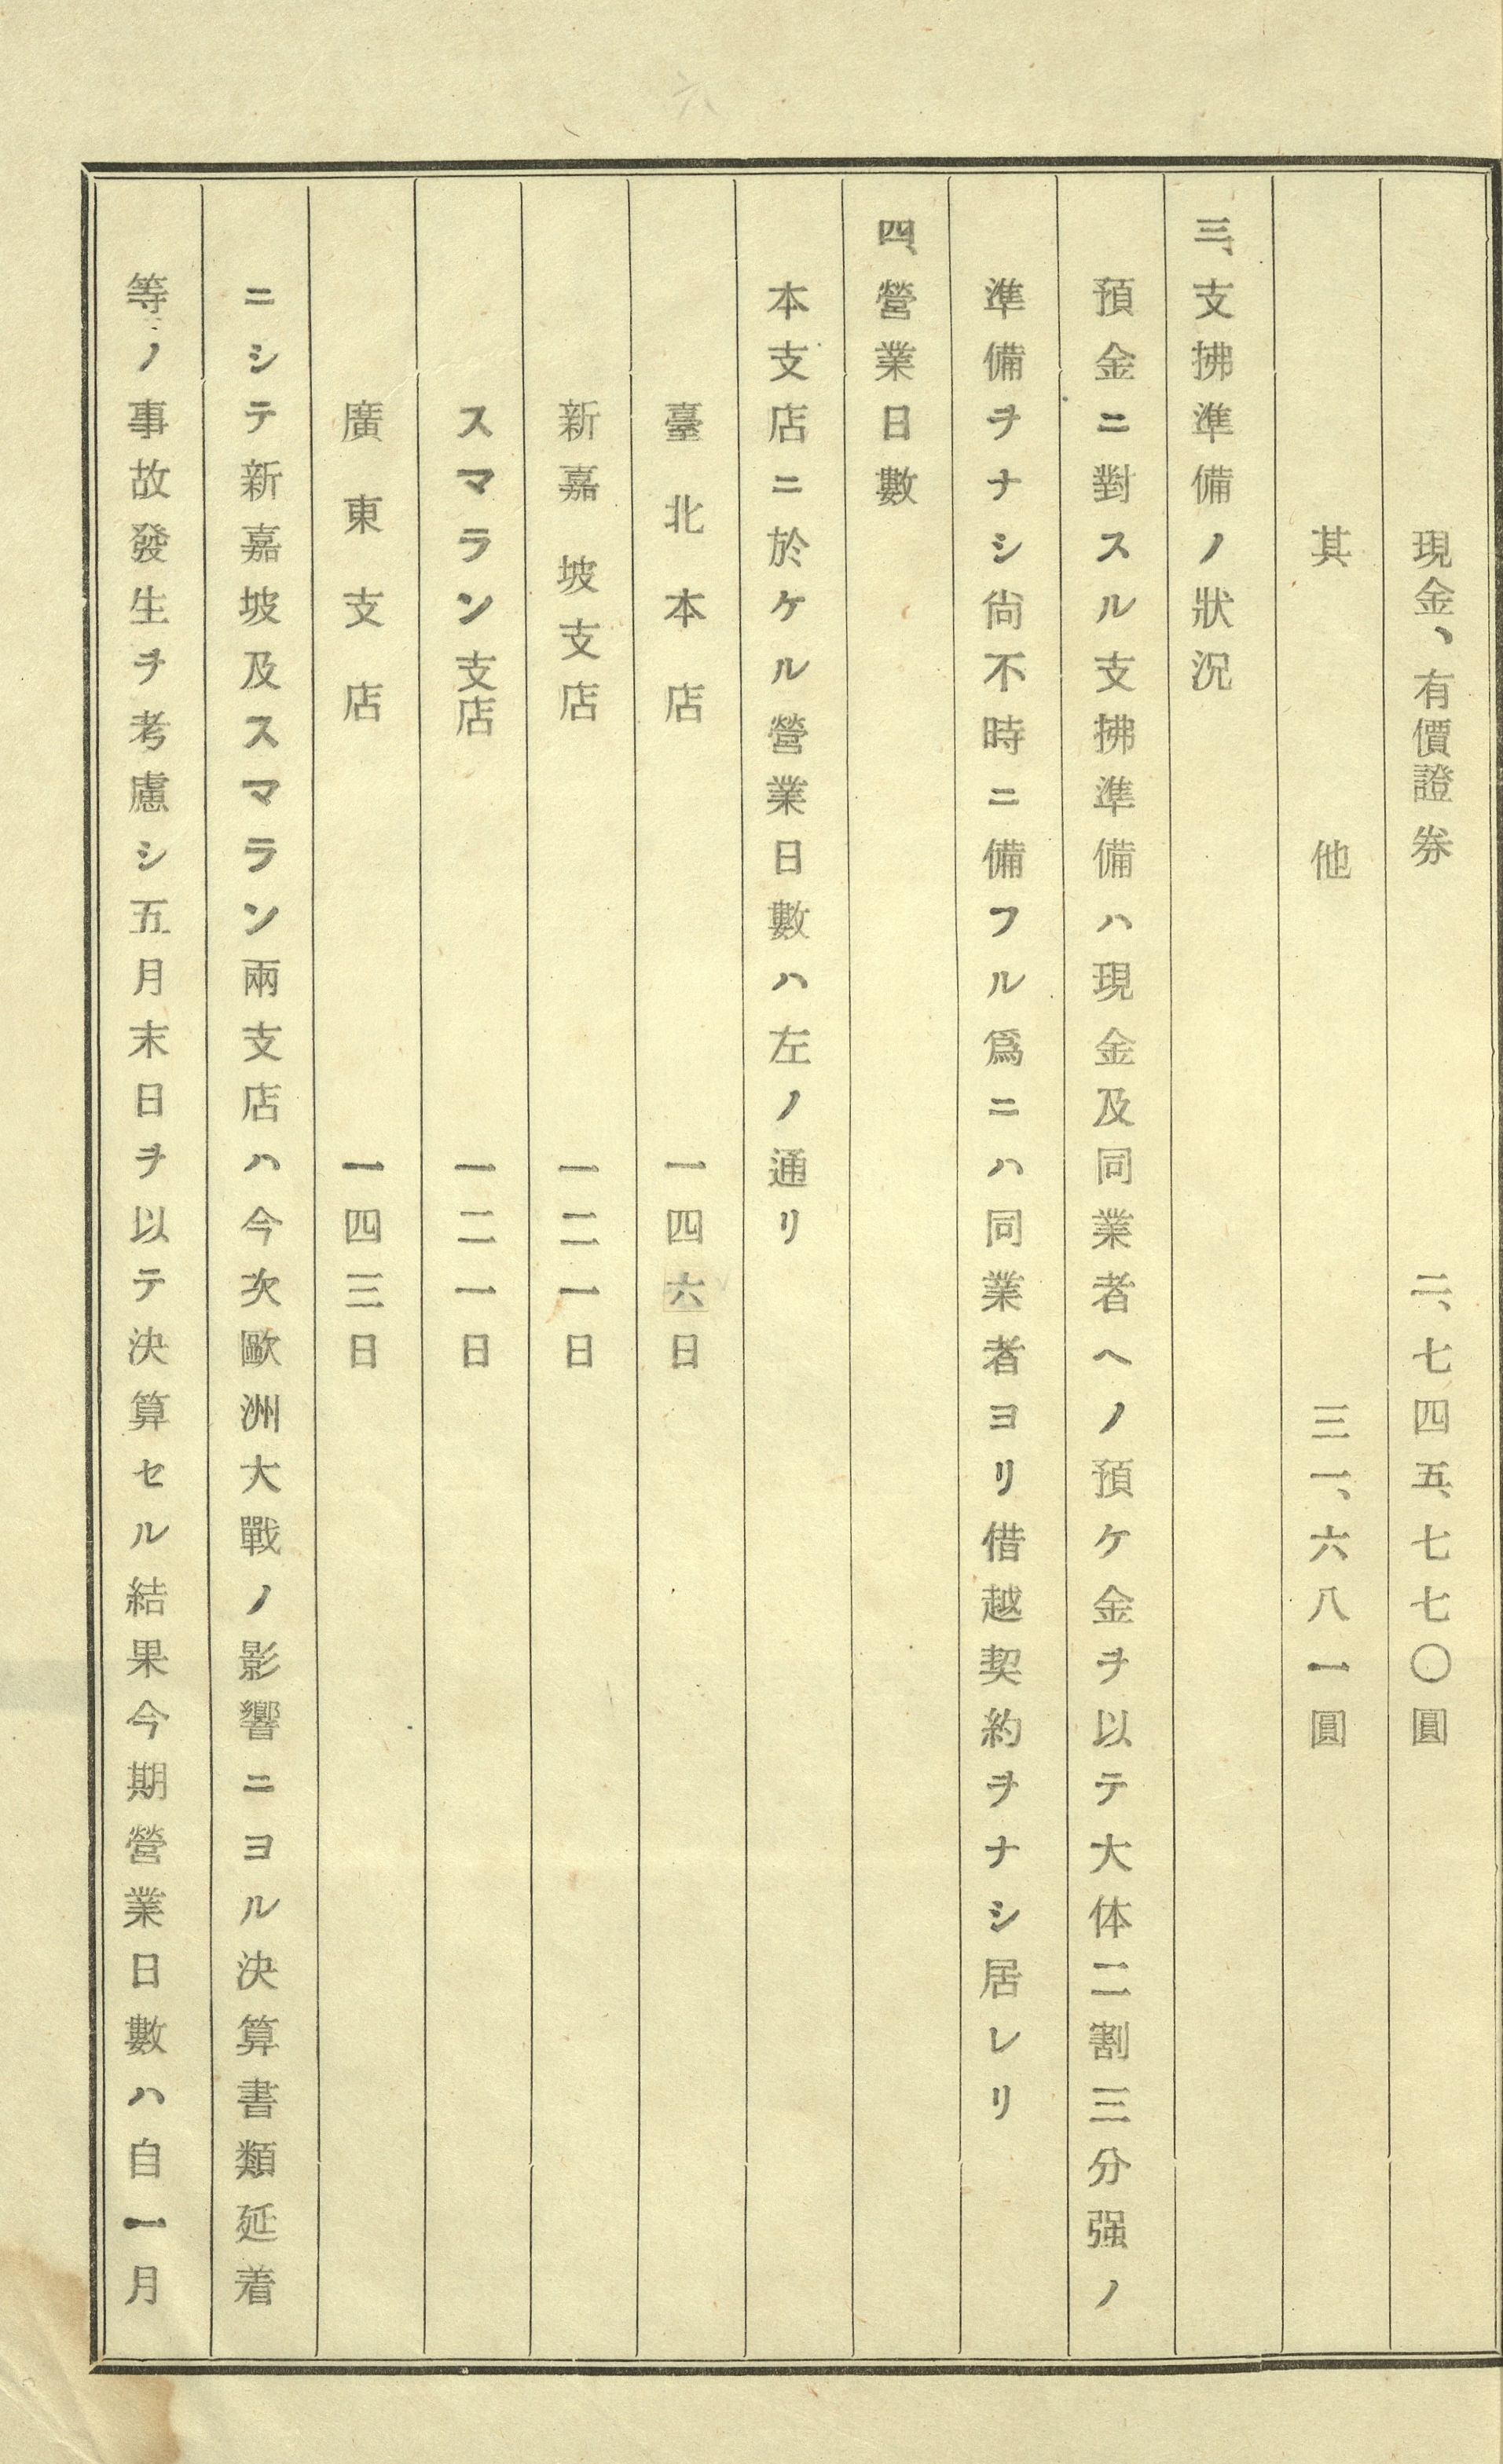 現金、有價證券 二、七四五、七七〇圓
其他 三一、六八一圓
三、支拂準備ノ狀況
預金ニ對スル支拂準備ハ現金及同業者ヘノ預ケ金ヲ以テ大体二割三分强ノ
準備ヲナシ尙不時ニ備フル爲ニハ同業者ヨリ借越契約ヲナシ居レリ
四、營業日數
本支店ニ於ケル營業日數ハ左ノ通リ
臺北本店 一四六日
新嘉坡支店 一二一日
スマラン支店 一二一日
廣東支店 一四三日
ニシテ新嘉坡及スマラン兩支店ハ今次歐洲大戰ノ影響ニヨル決算書類延着
等ノ事故發生ヲ考慮シ五月末日ヲ以テ決算セル結果今期營業日數ハ自一月